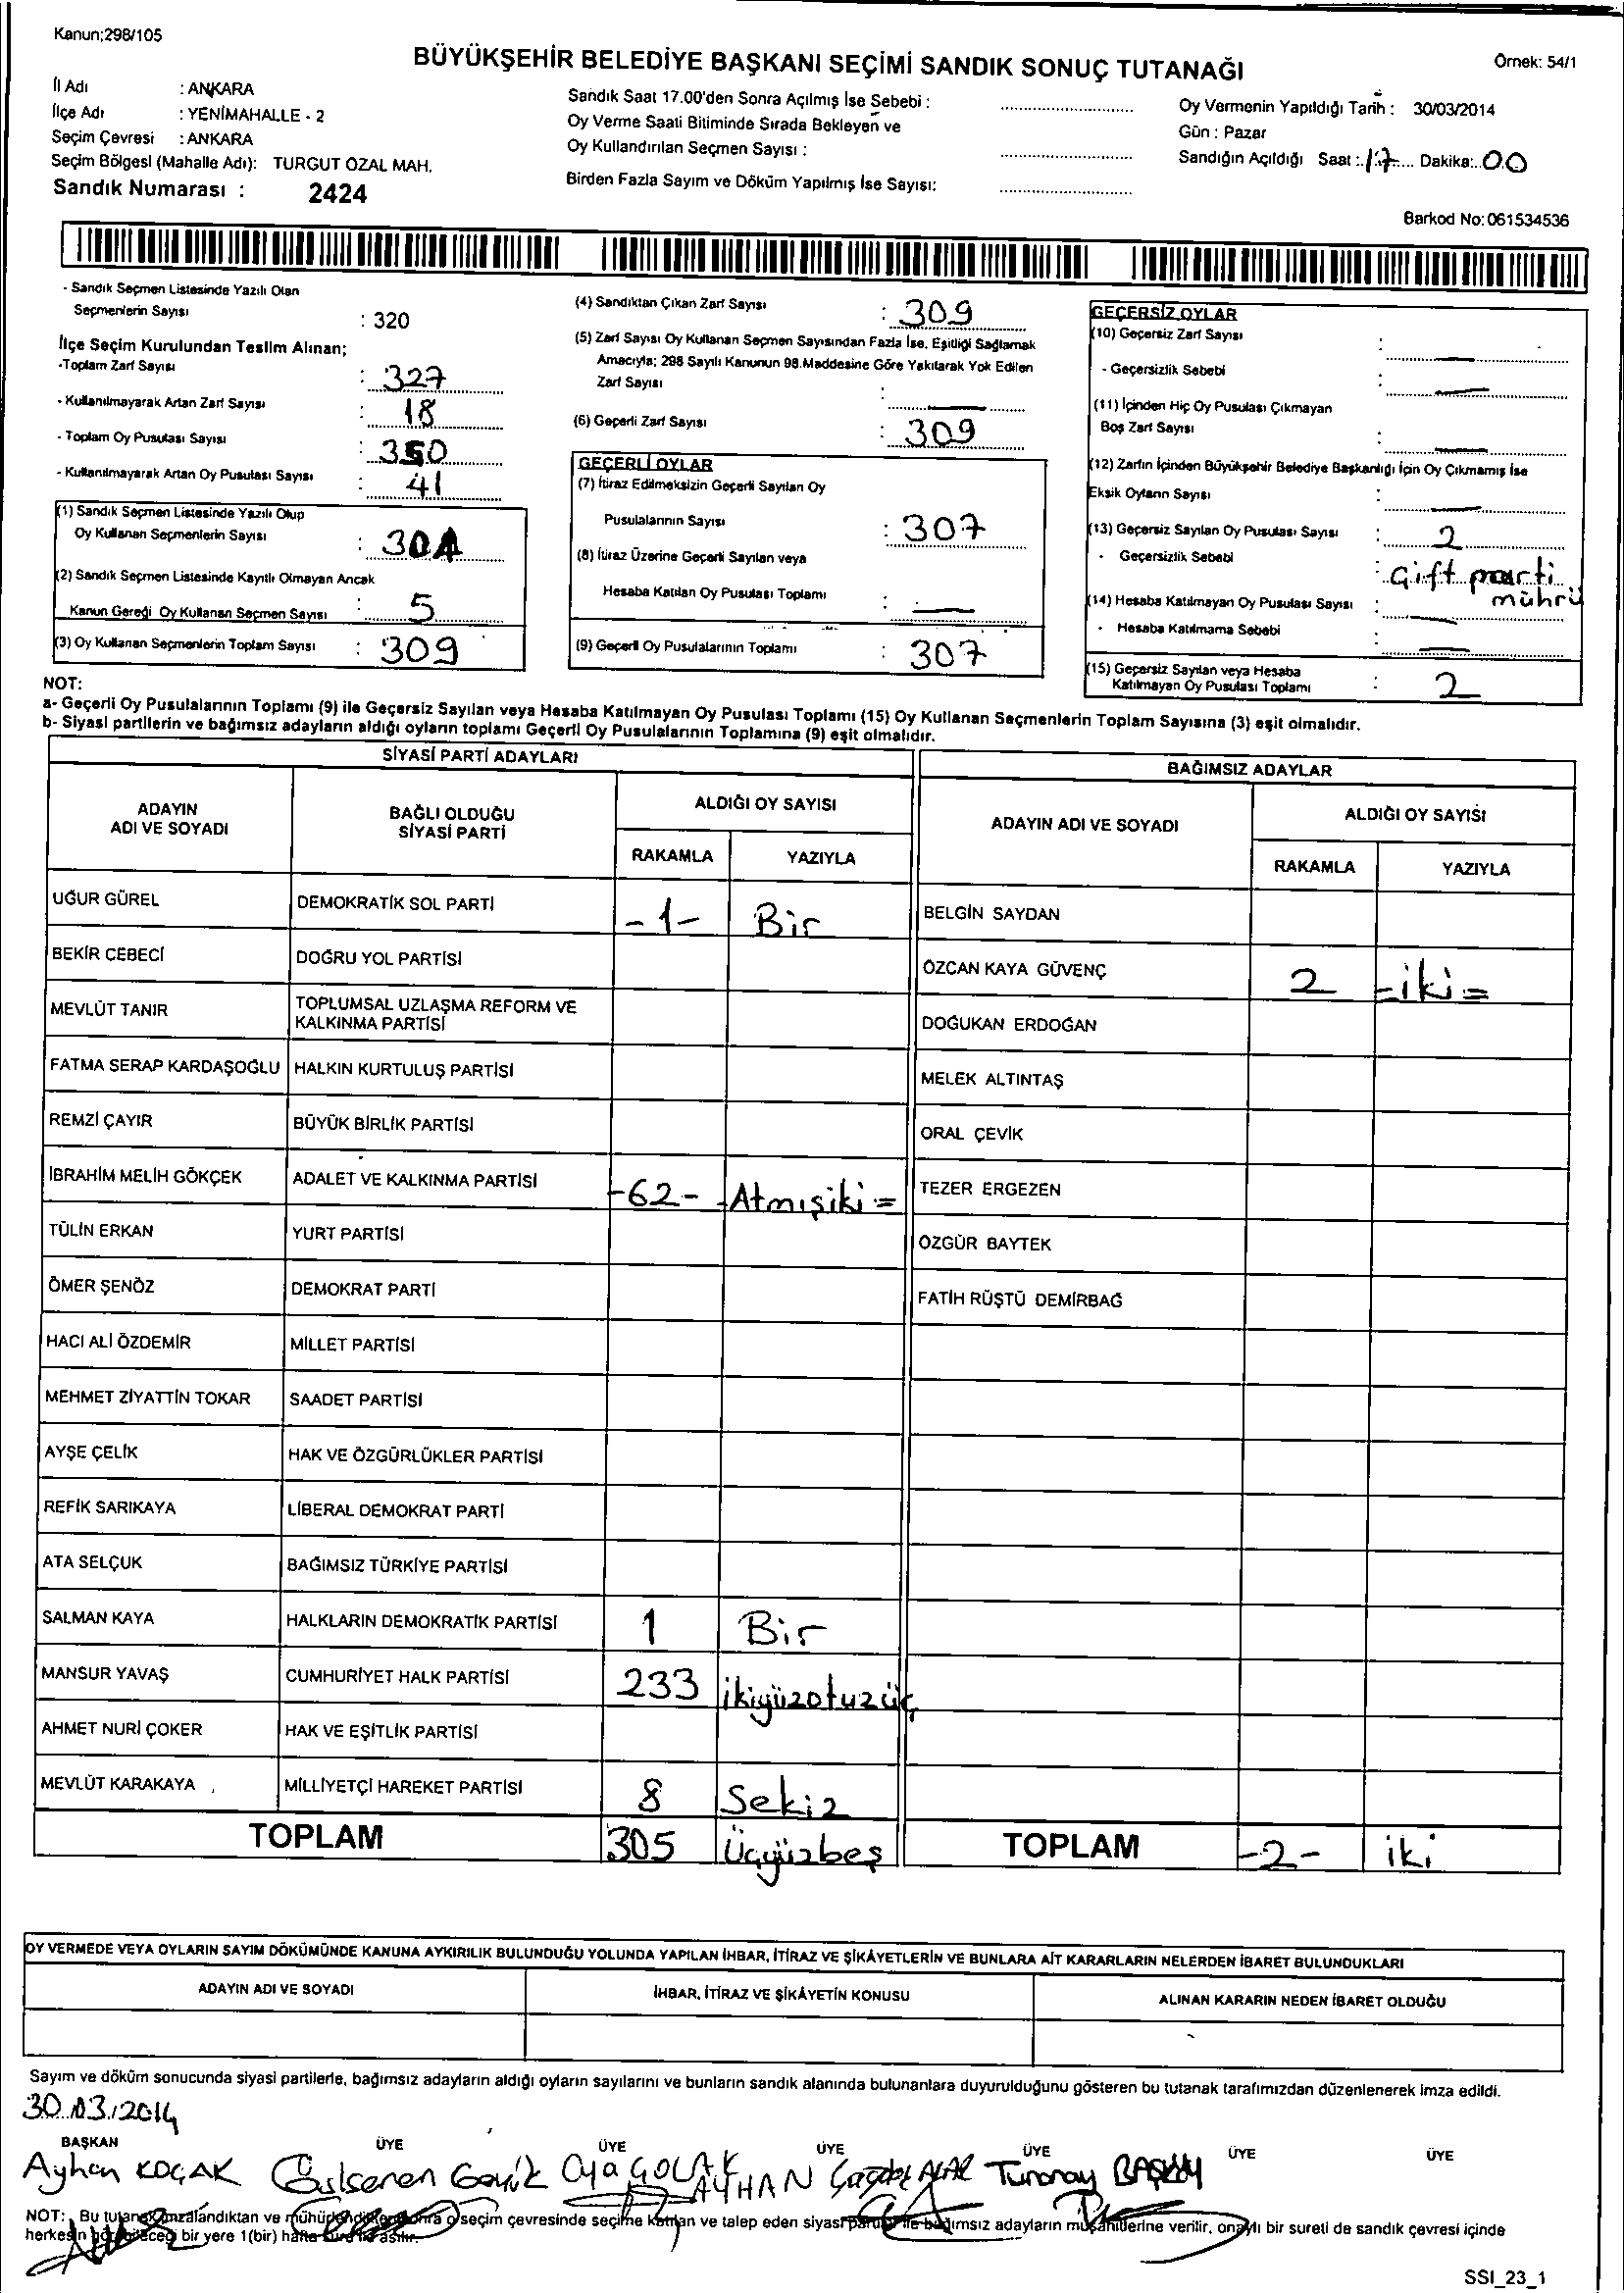 Kanun;298/105
BÜYÜKŞEHİR BELEDİYE BAŞKANI SEÇİMİ SANDIK SONUÇ TUTANAĞI
Örnek: 54/1
İl Adı : ANKARA
İlçe Adı : YENİMAHALLE - 2
Seçim Çevresi : ANKARA
Seçim Bölgesi (Mahalle Adı): TURGUT ÖZAL MAH.
Sandık Numarası : 2424
Sandık Saat 17.00'den Sonra Açılmış İse Sebebi :
Oy Verme Saati Bitiminde Sırada Bekleyen ve
Oy Kullandırılan Seçmen Sayısı :
Birden Fazla Sayım ve Döküm Yapılmış İse Sayısı:
Oy Vermenin Yapıldığı Tarih : 30/03/2014
Gün : Pazar
Sandığın Açıldığı Saat : 17 Dakika: 00
Barkod No: 061534536
- Sandık Seçmen Listesinde Yazılı Olan
Seçmenlerin Sayısı : 320
İlçe Seçim Kurulundan Teslim Alınan;
-Toplam Zarf Sayısı : 327
- Kullanılmayarak Artan Zarf Sayısı : 18
- Toplam Oy Pusulası Sayısı : 350
- Kullanılmayarak Artan Oy Pusulası Sayısı : 41
(1) Sandık Seçmen Listesinde Yazılı Olup
Oy Kullanan Seçmenlerin Sayısı : 304
(2) Sandık Seçmen Listesinde Kayıtlı Olmayan Ancak
Kanun Gereği Oy Kullanan Seçmen Sayısı : 5
(3) Oy Kullanan Seçmenlerin Toplam Sayısı : 309
(4) Sandıktan Çıkan Zarf Sayısı : 309
(5) Zarf Sayısı Oy Kullanan Seçmen Sayısından Fazla İse, Eşitliği Sağlamak
Amacıyla; 298 Sayılı Kanunun 98.Maddesine Göre Yakılarak Yok Edilen
Zarf Sayısı : —
(6) Geçerli Zarf Sayısı : 309
GEÇERLİ OYLAR
(7) İtiraz Edilmeksizin Geçerli Sayılan Oy
Pusulalarının Sayısı : 307
(8) İtiraz Üzerine Geçerli Sayılan veya
Hesaba Katılan Oy Pusulası Toplamı : —
(9) Geçerli Oy Pusulalarının Toplamı : 307
GEÇERSİZ OYLAR
(10) Geçersiz Zarf Sayısı : —
- Geçersizlik Sebebi : —
(11) İçinden Hiç Oy Pusulası Çıkmayan
Boş Zarf Sayısı : —
(12) Zarfın İçinden Büyükşehir Belediye Başkanlığı İçin Oy Çıkmamış İse
Eksik Oyların Sayısı : —
(13) Geçersiz Sayılan Oy Pusulası Sayısı : 2
- Geçersizlik Sebebi : Çift parti mührü
(14) Hesaba Katılmayan Oy Pusulası Sayısı : —
- Hesaba Katılmama Sebebi : —
(15) Geçersiz Sayılan veya Hesaba
Katılmayan Oy Pusulası Toplamı : 2
NOT:
a- Geçerli Oy Pusulalarının Toplamı (9) ile Geçersiz Sayılan veya Hesaba Katılmayan Oy Pusulası Toplamı (15) Oy Kullanan Seçmenlerin Toplam Sayısına (3) eşit olmalıdır.
b- Siyasi partilerin ve bağımsız adayların aldığı oyların toplamı Geçerli Oy Pusulalarının Toplamına (9) eşit olmalıdır.
SİYASİ PARTİ ADAYLARI
ADAYIN ADI VE SOYADI
BAĞLI OLDUĞU SİYASİ PARTİ
ALDIĞI OY SAYISI
RAKAMLA YAZIYLA
UĞUR GÜREL DEMOKRATİK SOL PARTİ -1- Bir
BEKİR CEBECİ DOĞRU YOL PARTİSİ
MEVLÜT TANIR TOPLUMSAL UZLAŞMA REFORM VE KALKINMA PARTİSİ
FATMA SERAP KARDAŞOĞLU HALKIN KURTULUŞ PARTİSİ
REMZİ ÇAYIR BÜYÜK BİRLİK PARTİSİ
İBRAHİM MELİH GÖKÇEK ADALET VE KALKINMA PARTİSİ -62- -Atmışiki=
TÜLİN ERKAN YURT PARTİSİ
ÖMER ŞENÖZ DEMOKRAT PARTİ
HACI ALİ ÖZDEMİR MİLLET PARTİSİ
MEHMET ZİYATTİN TOKAR SAADET PARTİSİ
AYŞE ÇELİK HAK VE ÖZGÜRLÜKLER PARTİSİ
REFİK SARIKAYA LİBERAL DEMOKRAT PARTİ
ATA SELÇUK BAĞIMSIZ TÜRKİYE PARTİSİ
SALMAN KAYA HALKLARIN DEMOKRATİK PARTİSİ 1 Bir
MANSUR YAVAŞ CUMHURİYET HALK PARTİSİ 233 ikiyüzotuzüç
AHMET NURİ ÇOKER HAK VE EŞİTLİK PARTİSİ
MEVLÜT KARAKAYA MİLLİYETÇİ HAREKET PARTİSİ 8 Sekiz
TOPLAM 305 Üçyüzbeş
BAĞIMSIZ ADAYLAR
ADAYIN ADI VE SOYADI
ALDIĞI OY SAYISI
RAKAMLA YAZIYLA
BELGİN SAYDAN
ÖZCAN KAYA GÜVENÇ 2 -iki=
DOĞUKAN ERDOĞAN
MELEK ALTINTAŞ
ORAL ÇEVİK
TEZER ERGEZEN
ÖZGÜR BAYTEK
FATİH RÜŞTÜ DEMİRBAĞ
TOPLAM -2- iki
OY VERMEDE VEYA OYLARIN SAYIM DÖKÜMÜNDE KANUNA AYKIRILIK BULUNDUĞU YOLUNDA YAPILAN İHBAR, İTİRAZ VE ŞİKÂYETLERİN VE BUNLARA AİT KARARLARIN NELERDEN İBARET BULUNDUKLARI
ADAYIN ADI VE SOYADI İHBAR, İTİRAZ VE ŞİKÂYETİN KONUSU ALINAN KARARIN NEDEN İBARET OLDUĞU
Sayım ve döküm sonucunda siyasi partilerle, bağımsız adayların aldığı oyların sayılarını ve bunların sandık alanında bulunanlara duyurulduğunu gösteren bu tutanak tarafımızdan düzenlenerek imza edildi.
30.03.2014
BAŞKAN ÜYE ÜYE ÜYE ÜYE ÜYE ÜYE
Ayhan KOÇAK Gülseren Oya ÇOLAK AYHAN Turanay
NOT: Bu tutanak imzalandıktan ve mühürlendikten sonra o seçim çevresinde seçime katılan ve talep eden siyasi parti ile bağımsız adayların müşahitlerine verilir, onaylı bir sureti de sandık çevresi içinde
herkesin görebileceği bir yere 1(bir) hafta süre ile asılır.
SSI_23_1